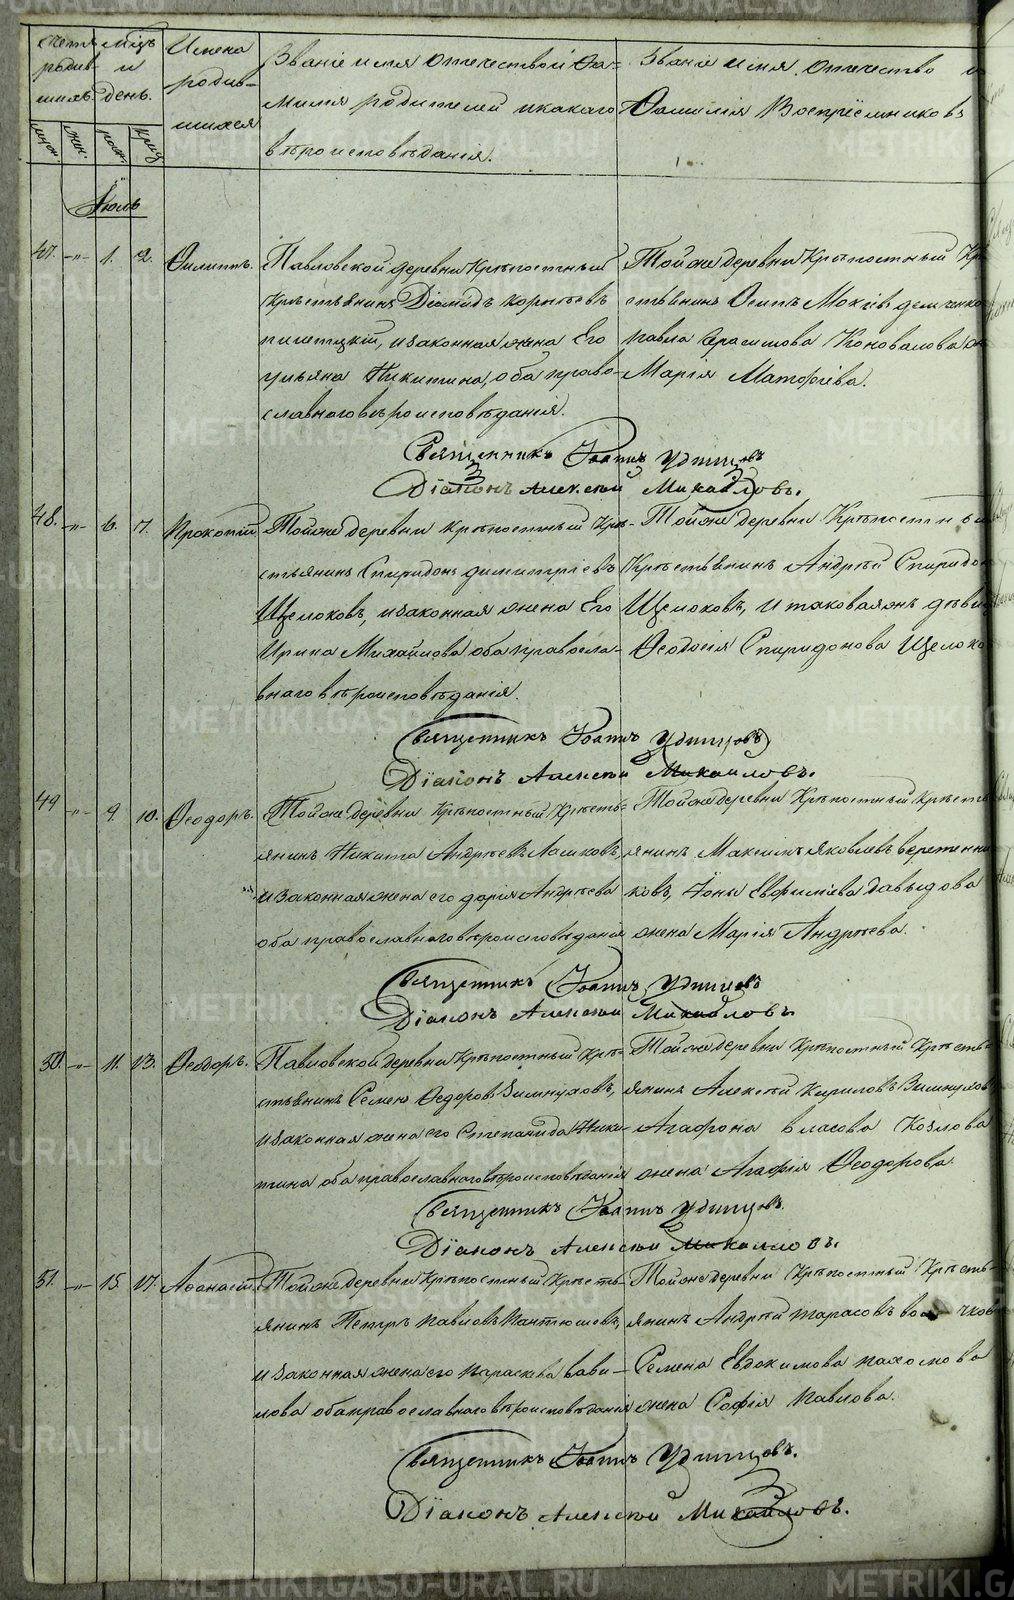 Счетъ родив- шихъ
мѣцъ и день.
Имена родив- шихся
Званіе имя отечество и Фа-
милія родителей и какаго
вѣроисповѣданія.
Званіе имя, отечество и
Фамилія Воспріемниковъ
муж. жен. рож. крещ.
Іюль
47. -"- 1. 2. Филиппъ.
Павловской деревни Крѣпостный
Крестьянинъ Діомидъ
, и законная жена Его
ульяна Никитина, оба право-
славнаго вѣроисповѣданія.
Тойже деревни Крѣпостный Кре
стьянинъ Осипъ Мокіевъ
Павла Герасимова Коновалова
Марія Матфіева.
Священникъ Іоаннъ Удинцовъ
Діаконъ Алексѣй Михайловъ.
48. -"- 6. 7. Прокопій
Тойже деревни Крѣпостный Кре-
стьянинъ Спиридонъ димитріевъ
Щелоковъ, и законная жена Его
Ирина Михайлова оба правосла-
внаго вѣроисповѣданія.
Тойже деревни Крѣпостный
Крестьянинъ Андрѣй Спиридо
Щелоковъ, и таковаяжъ дѣви
Ѳеодосія Спиридонова Щелоко
Священникъ Іоаннъ Удинцовъ
Діаконъ Алексѣй Михайловъ.
49 -"- 9. 10. Ѳеодоръ.
Тойже деревни Крѣпостный Кресть-
янинъ Никита Андрѣевъ Лашковъ,
и законная жена его дарія Андрѣева
оба православнаго вѣроисповѣданія
Тойже деревни Крѣпостный Кресть
янинъ Максимъ Яковлевъ веретенни
ковъ, Іоны Евфиміева давыдова
жена Марія Андрѣева.
Священникъ Іоаннъ Удинцовъ
Діаконъ Алексѣй Михайловъ.
50. -"- 11. 13. Ѳеодоръ.
Павловской деревни Крѣпостный Кре-
стьянинъ Семенъ Ѳедоровъ Зимнуховъ,
и законная жена его Степанида Ники-
тина оба православнаго вѣроисповѣданія
Тойже деревни Крѣпостный Кресть-
янинъ Алексѣй Кириловъ Зимнуховъ
Агафона власова Козлова
жена Агафія Ѳеодорова.
Священникъ Іоаннъ Удинцовъ.
Діаконъ Алексѣй Михайловъ.
51. -"- 15. 17. Аѳанасій.
Тойже деревни Крѣпостный Кресть-
янинъ Петръ Павловъ Пантюшевъ,
и законная жена его Параскева вави-
лова оба православнаго вѣроисповѣданія
Тойже деревни Крѣпостный Кресть-
янинъ Андрѣй Тарасовъ
Семена Евдокимова пахомова
жена Софія Павлова.
Священникъ Іоаннъ Удинцовъ.
Діаконъ Алексѣй Михайловъ.
METRIKI.GASO-URAL.RU